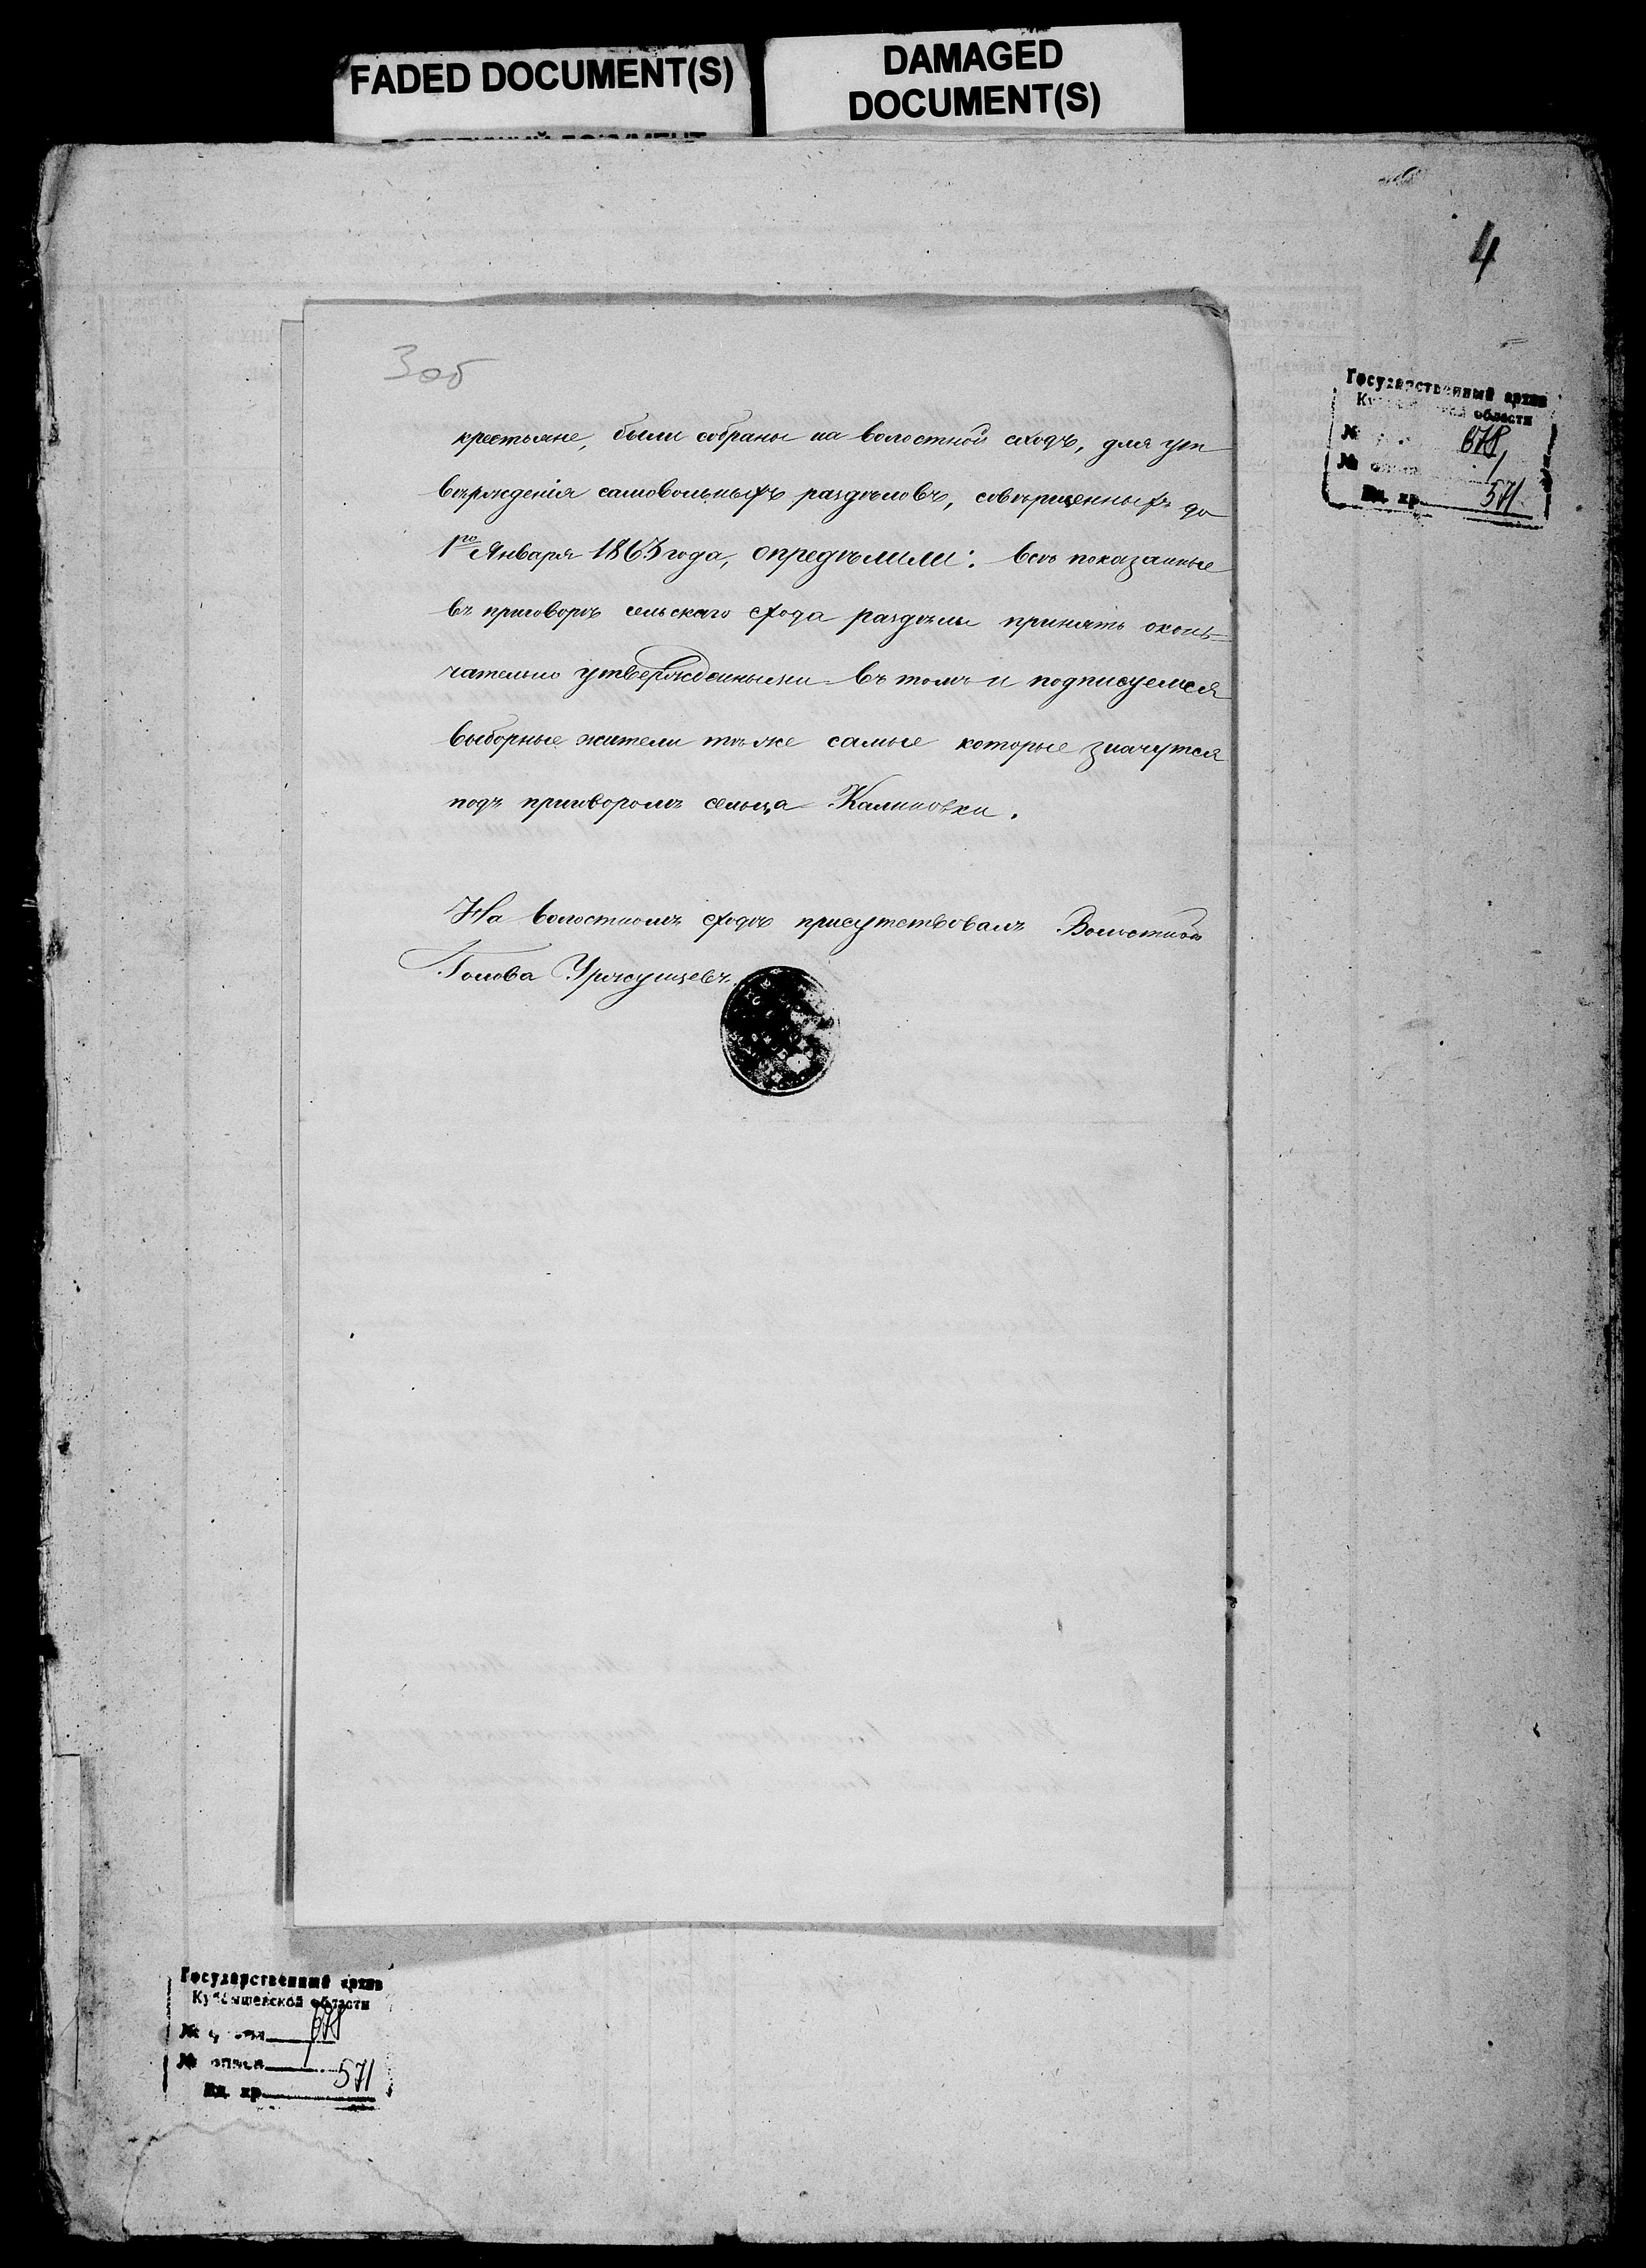 FADED DOCUMENT(S)
DAMAGED
DOCUMENT(S)
4
Государственный архив
области
№ 678
№ 1
Ед. хр. 571
3об
крестьяне, были собраны на волостной сходъ, для ут
вѣржденія самовольныхъ раздѣловъ, совѣршенныхъ до
1го Января 1863 года, опредѣлили: всѣ показанные
въ приговорѣ сельскаго схода раздѣлы принять окон-
чательно утвержденными въ томъ и подписуемся
выборные жители тѣ-же самые которые значутся
подъ приговоромъ сельца Калиновки.
На волостномъ сходѣ присутствовалъ Волостной
Голова
Государственный архив
Куйбышевской области
№ фонда 678
№ описи 1
Ед. хр. 571